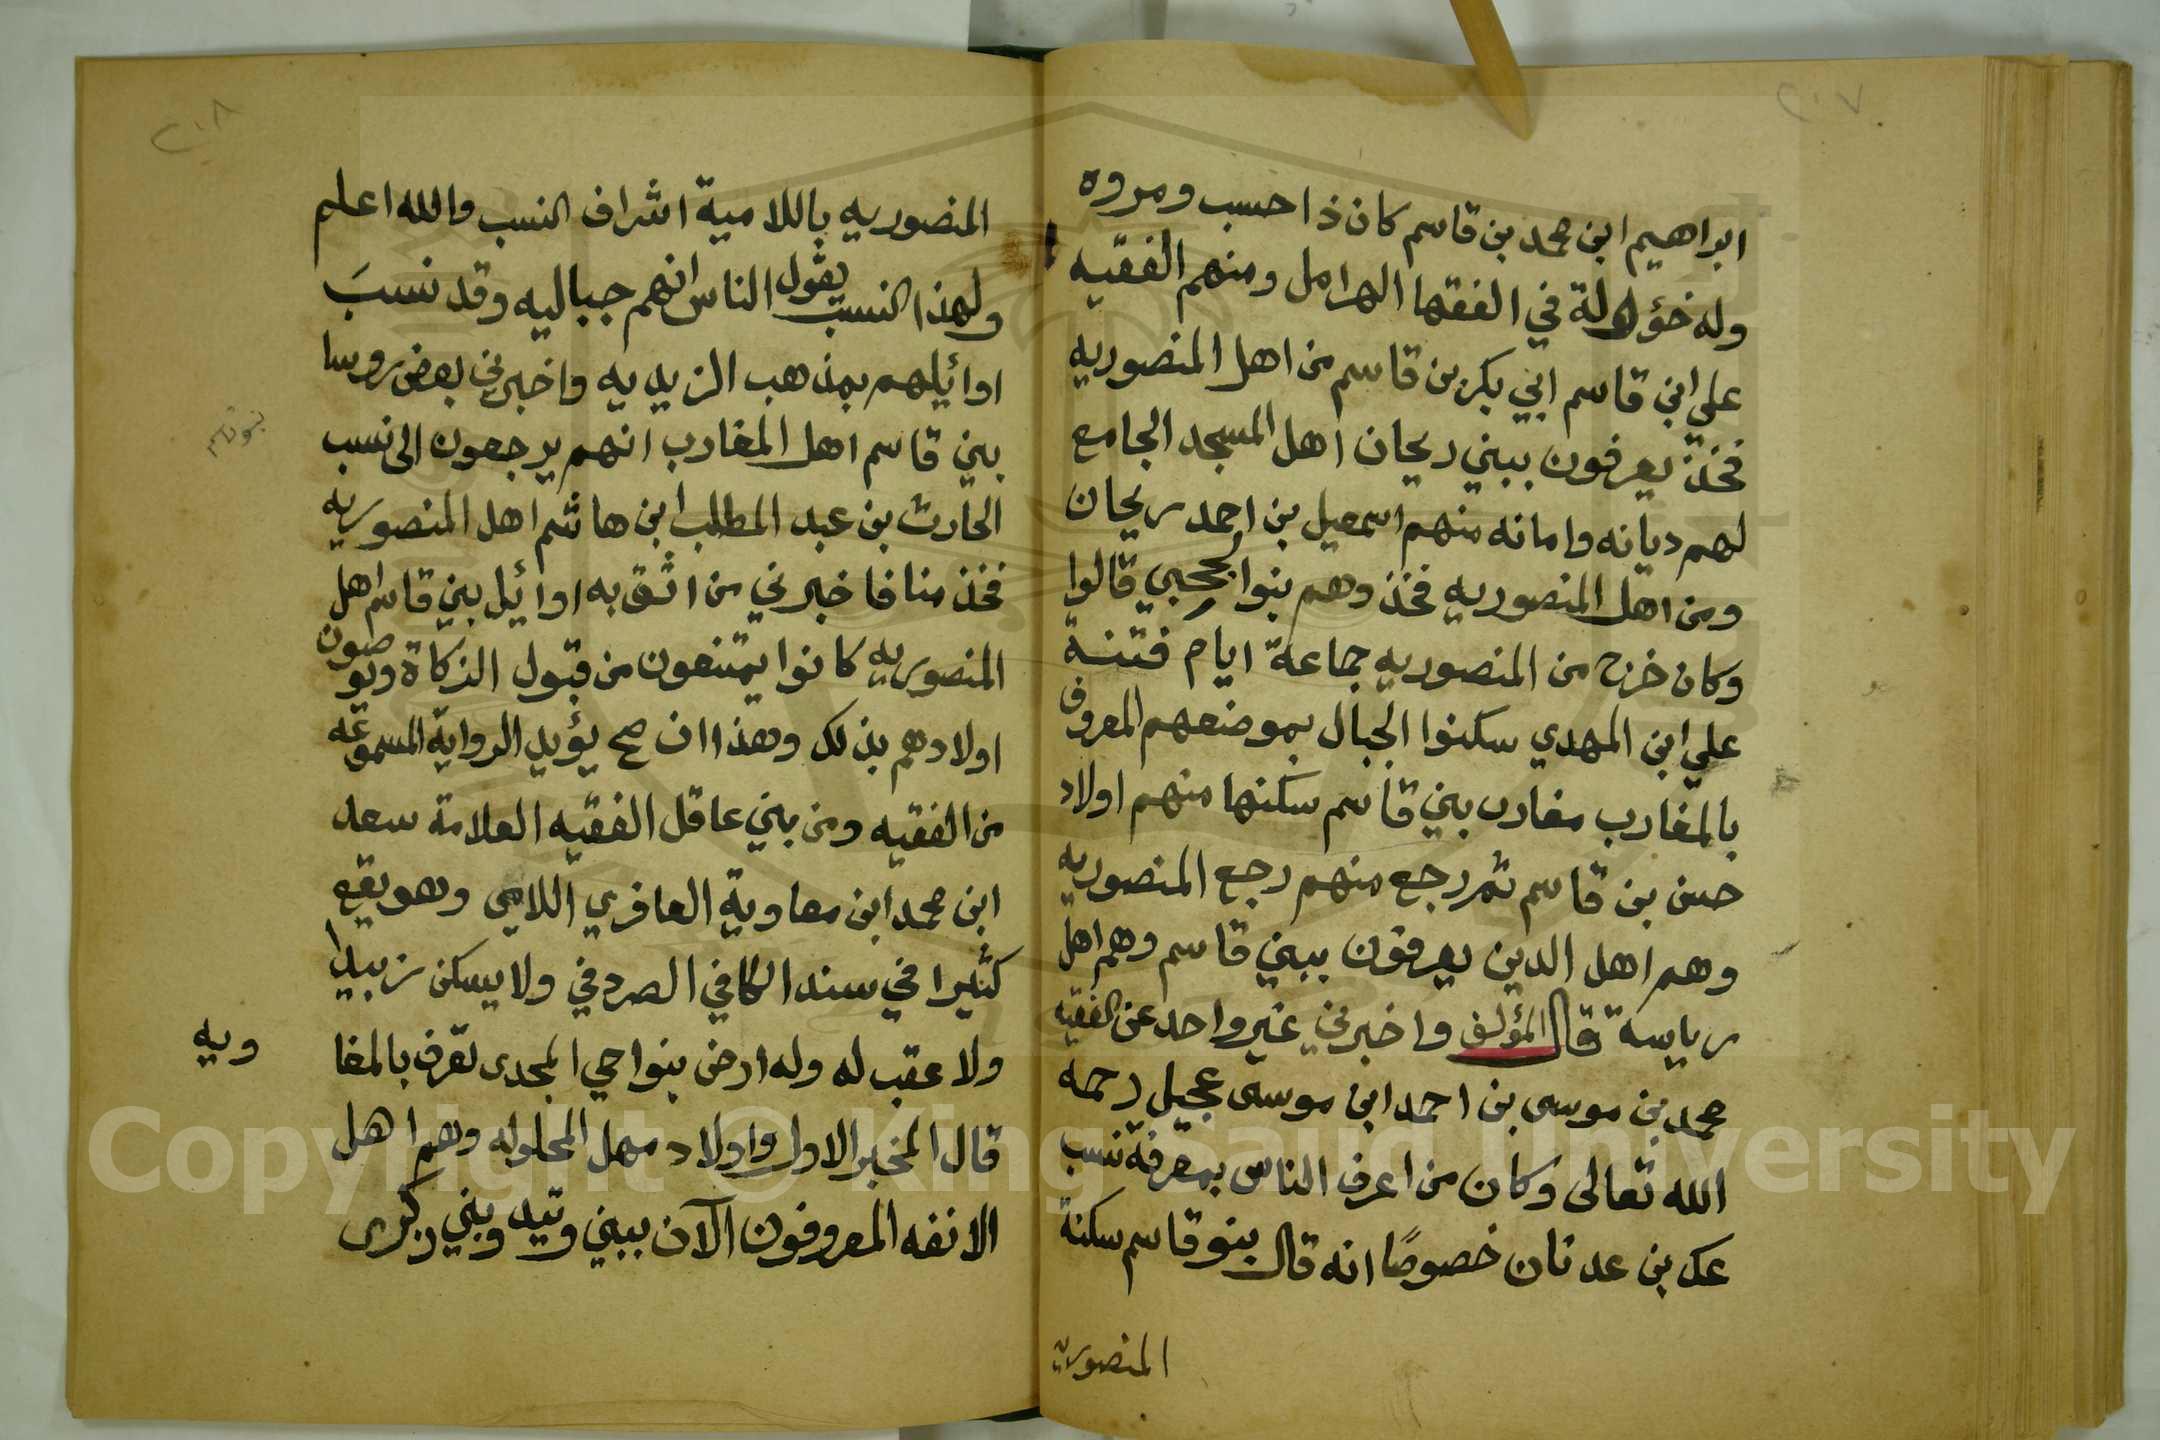 ٢٠٧
ابراهيم ابن محمد بن قاسم كان ذا حسب ومروه
وله خؤولة في الفقها الهرامل ومنهم الفقيه
علي ابن قاسم ابي بكر بن قاسم من اهل المنصوريه
فخذ يعرفون ببني ريحان اهل المسجد الجامع
لهم ديانه وامانه منهم اسمعيل بن احمد ريحان
ومن اهل المنصوريه فخذ وهم بنوا قالوا
وكان خرج من المنصوريه جماعة ايام فتنة
علي ابن المهدي سكنوا الجبال بموضعهم المعروف
بالمغارب مغارب بني قاسم سكنها منهم اولاد
حسن بن قاسم ثم رجع منهم رجع المنصوريه
وهم اهل الدين يعرفون ببني قاسم وهم اهل
رياسة قال المؤلف واخبرني غير واحد عن الفقيه
محمد بن موسى بن احمد ابن موسى عجيل رحمه
الله تعالى وكان من اعرف الناس بمعرفة نسب
عك بن عدنان خصوصًا انه قال بنو قاسم سكنة
المنصوريه
٢٠٨
المنصوريه باللامية اشراف النسب والله اعلم
ولهذا النسب يقول الناس انهم جباليه وقد نسبَ
اوائيلهم بمذهب الزيديه واخبرني بعض روسا
بني قاسم اهل المغارب انهم يرجعون الى نسب
الحارث بن عبد المطلب ابن هاشم اهل المنصوريه
فخذ منا فاخبرني من اثق به اوائيل بني قاسم اهل
المنصوريه كانوا يمتنعون من قبول الزكاة ويوصون
اولادهم بذلك وهذا ان صح يؤيد الرواية المسموعه
من الفقيه ومن بني عاقل الفقيه العلامة سعد
ابن محمد ابن معاوية العافري اللامي وهو يقع
كثيرا في سند الكافي الصردفي ولا يسكن زبيدا
ولا عقب له وله ارض بنواحي المجدى تعرف بالمغا
ويه
قال المخبر الاول واولاد مهل المحلوله وهم اهل
الانفه المعروفون الآن ببني وتيد وبني زكرى